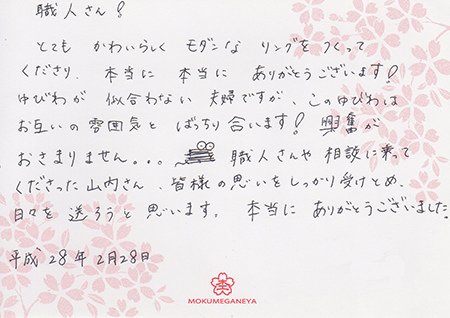 職人さん!
とても かわいらしく モダンな リングをつくって
くださり、本当に 本当に ありがとうございます!
ゆびわが 似合わない 夫婦ですが、このゆびわは
お互いの雰囲気と ばっちり合います! 興奮が
おさまりません。。。 職人さんや 相談に乗って
くださった 山内さん、皆様の思いをしっかり受けとめ、
日々を 送ろうと 思います。 本当に ありがとうございました。
平成 28年 2月28日
MOKUMEGANEYA